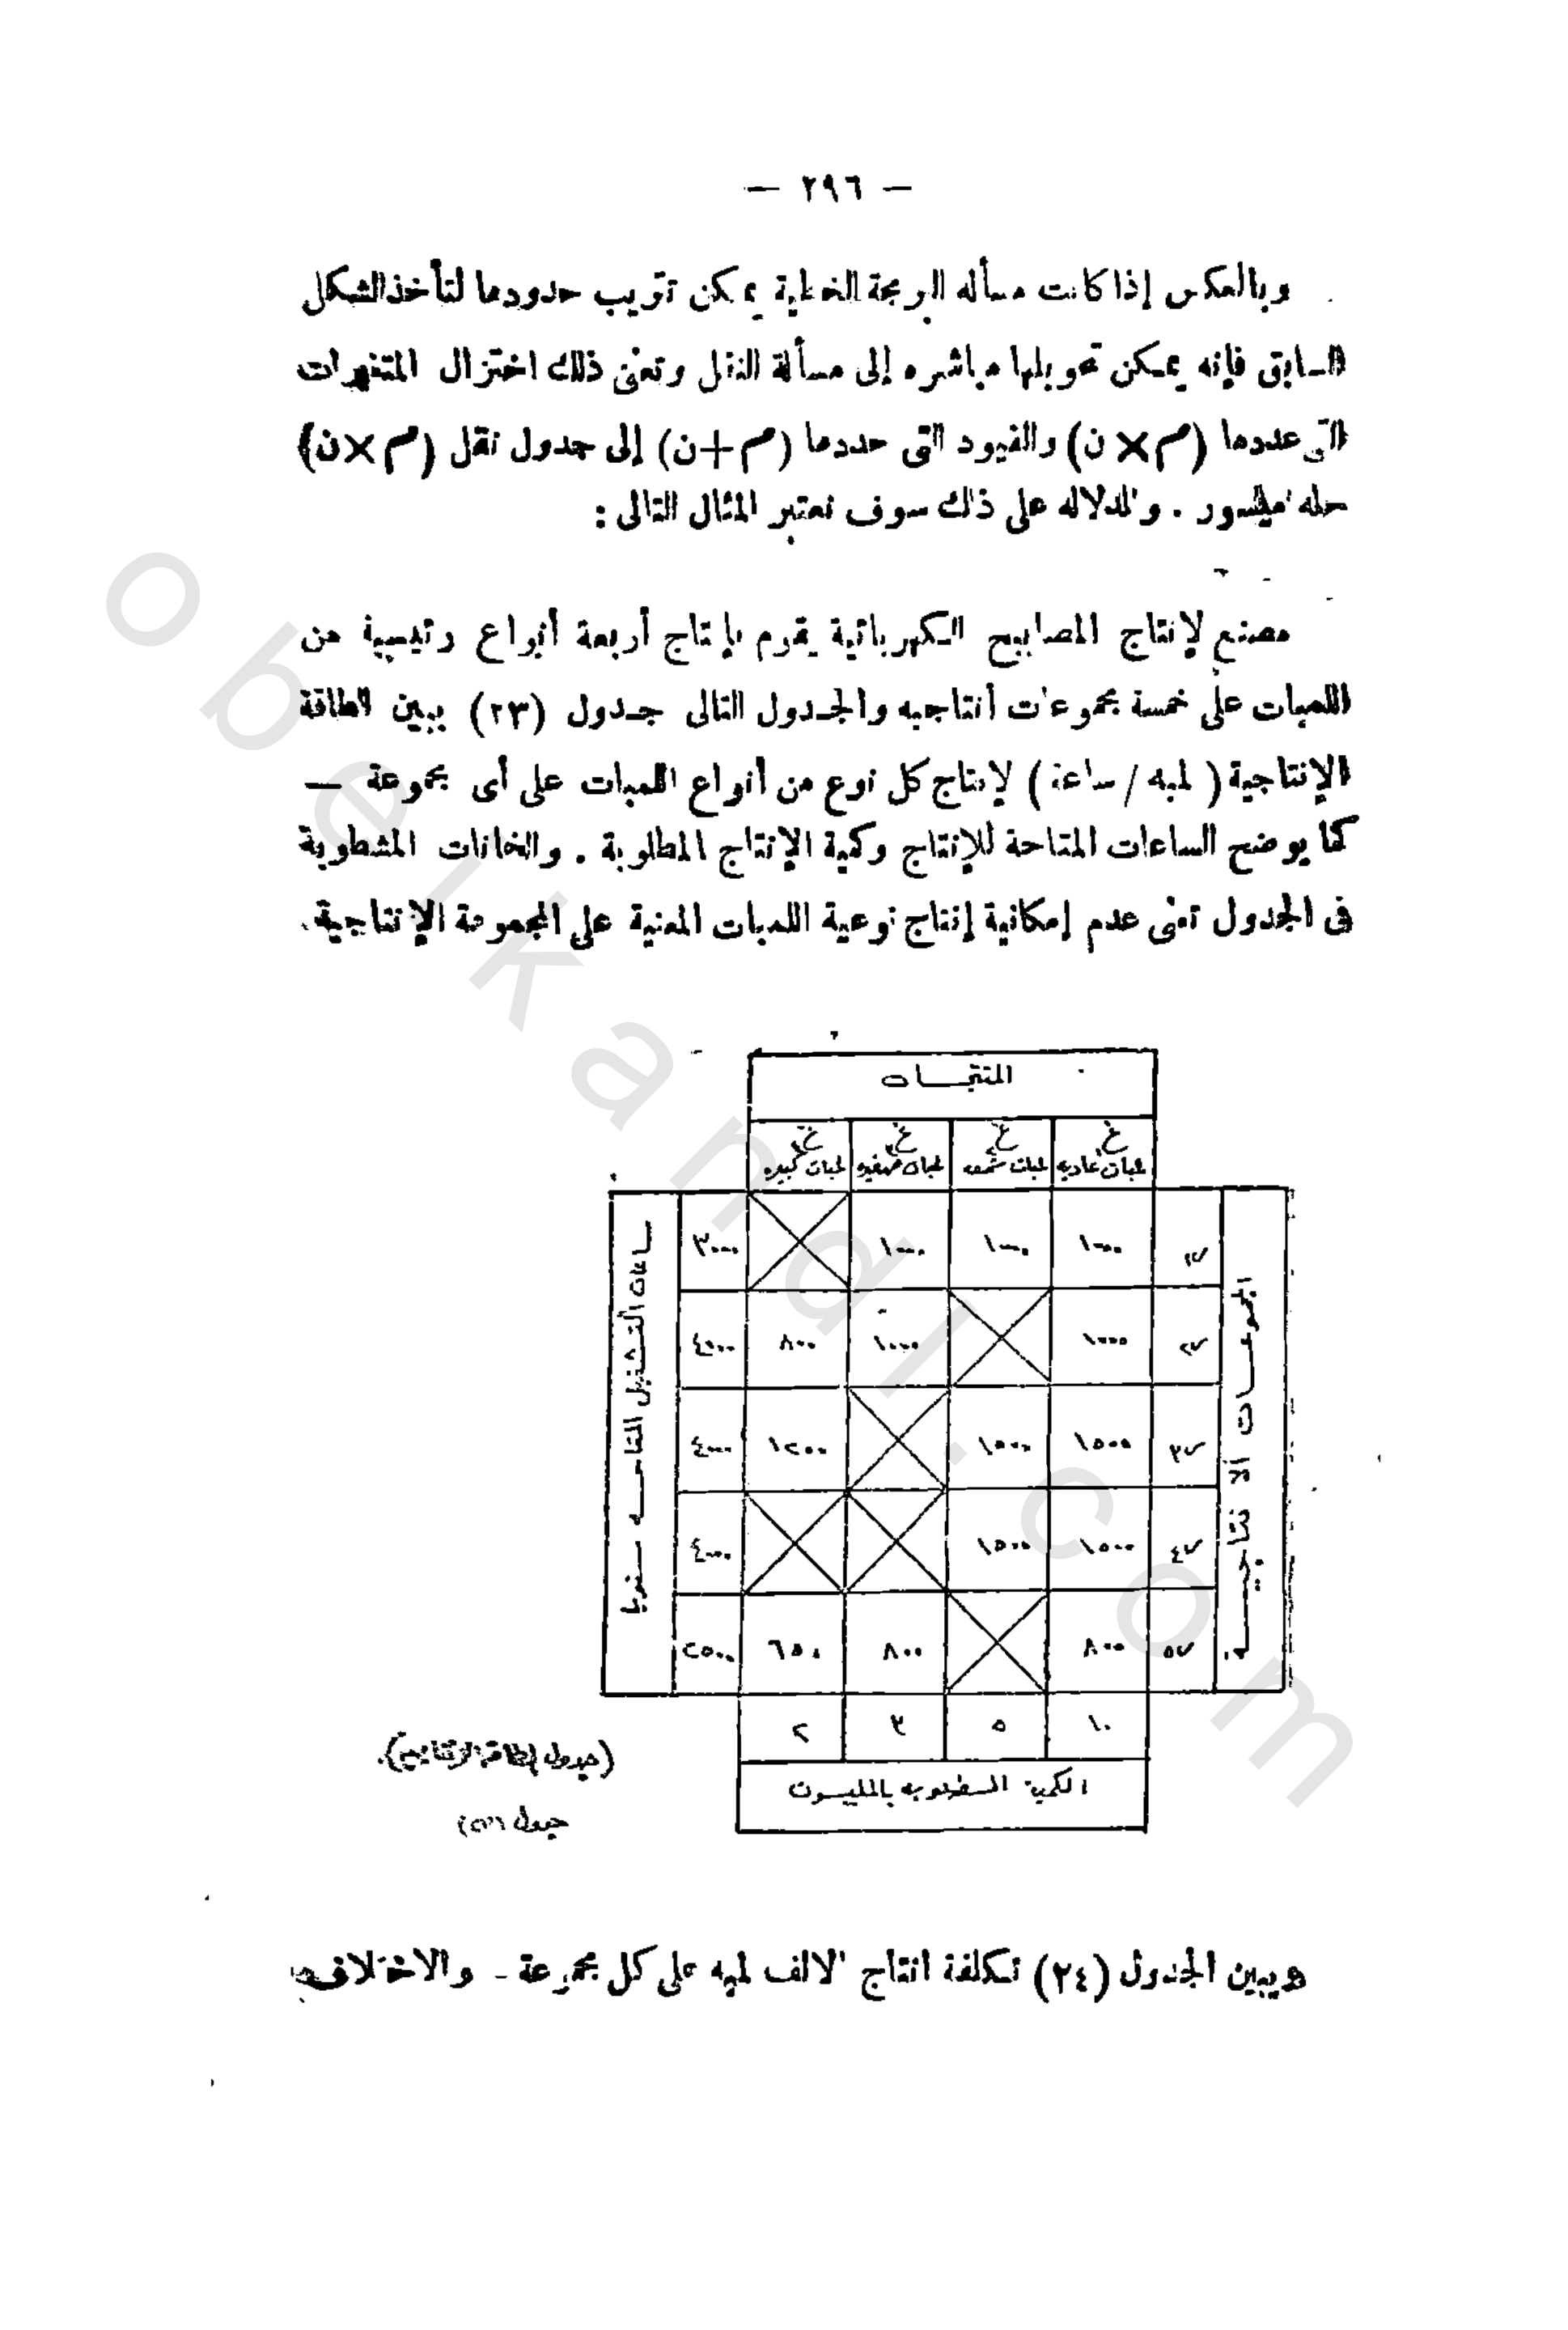 — ٢٩٦ —
وبالعكس إذا كانت مسأله البرمجة الخطية يمكن ترتيب حدودها لتأخذ الشكل
السابق فإنه يمكن تحويلها مباشره إلى مسألة النقل وتعنى ذلك اختزال المتغيرات
التى عددها (م × ن) والقيود التى حددها (م + ن) إلى جدول نقل (م × ن)
حله ميسور . وللدلاله على ذلك سوف نعتبر المثال التالى :
مصنع لإنتاج المصابيح الكهربائية يقوم بإنتاج أربعة أنواع رئيسية من
اللمبات على خمسة مجموعات أنتاجيه والجدول التالى جدول (٢٣) يبين الطاقة
الإنتاجية ( لمبه / ساعة ) لإنتاج كل نوع من أنواع اللمبات على أى مجموعة —
كما يوضح الساعات المتاحة للإنتاج وكمية الإنتاج المطلوبة . والخانات المشطوبة
فى الجدول تعنى عدم إمكانية إنتاج نوعية اللمبات المعنية على المجموعة الإنتاجية.
المنتجات
لمبات عاديه لمبات شمعه لمبات صغيره لمبات كبيره
المجموعات الانتاجيـة
ساعات التشغيل المتاحه سنويا
١٠٠٠ ١٠٠٠ ١٠٠٠ ٣٠٠٠
١٠٠٠ ١٠٠٠ ٨٠٠ ٤٥٠٠
١٥٠٠ ١٥٠٠ ١٢٠٠ ٤٠٠٠
١٥٠٠ ١٥٠٠ ٤٠٠٠
٨٠٠ ٨٠٠ ٦٥٠ ٢٥٠٠
١٠ ٥ ٣ ٢
الكمية المطلوبه بالمليون
(جدول الطاقة الإنتاجية)
جدول
ويبين الجدول (٢٤) تكلفة انتاج الالف لمبه على كل مجموعة - والاختلاف
obeikandl.com